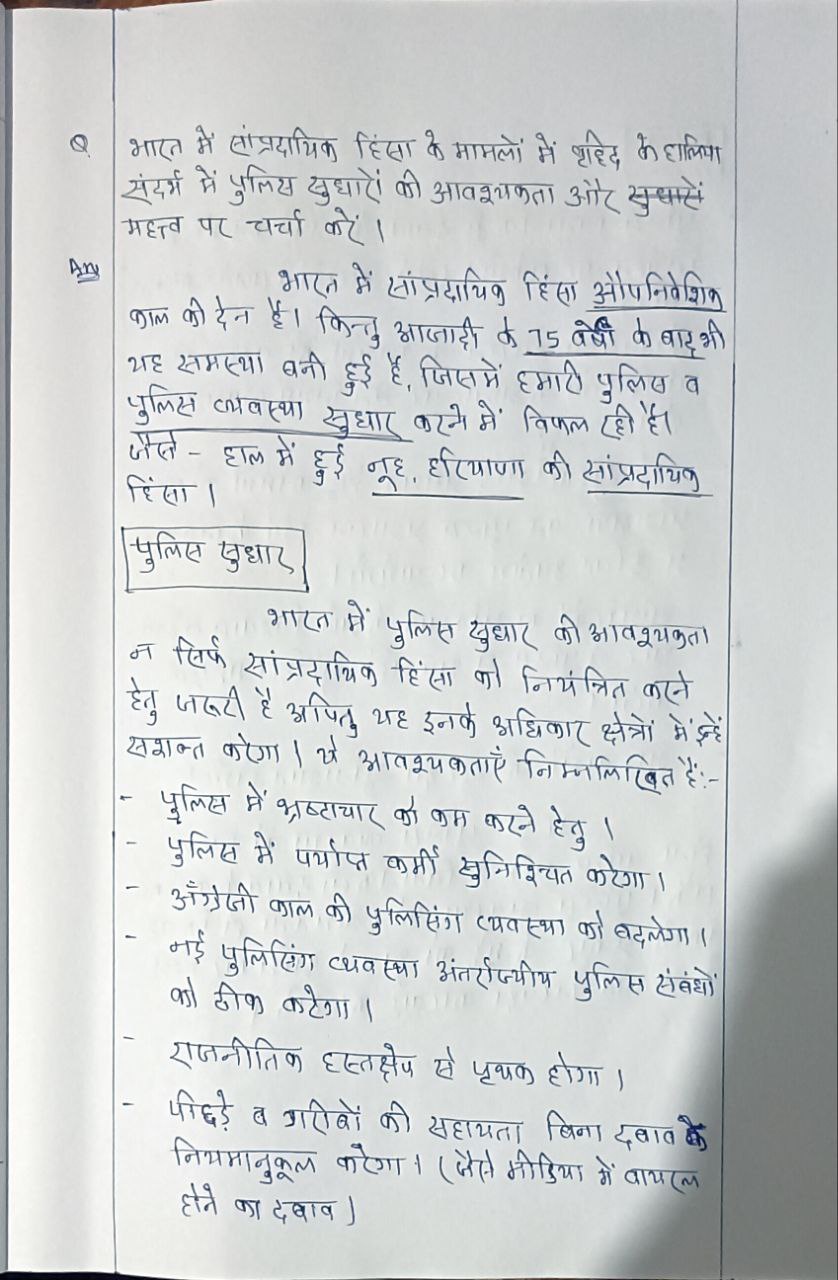 Q भारत में सांप्रदायिक हिंसा के मामलों में वृहिद के हालिया
संदर्भ में पुलिस सुधारों की आवश्यकता और सुधारों
महत्त्व पर चर्चा करें।
Ans भारत में सांप्रदायिक हिंसा औपनिवेशिक
काल की देन है। किन्तु आजादी के 75 वर्षों के बाद भी
यह समस्या बनी हुई है, जिसमें हमारी पुलिस व
पुलिस व्यवस्था सुधार करने में विफल रही है।
जैसे - हाल में हुई नूह, हरियाणा की सांप्रदायिक
हिंसा।
पुलिस सुधार
भारत में पुलिस सुधार की आवश्यकता
न सिर्फ सांप्रदायिक हिंसा को नियंत्रित करने
हेतु जरूरी है अपितु यह इनके अधिकार क्षेत्रों में इन्हें
सशक्त करेगा। ये आवश्यकताएँ निम्नलिखित हैं:-
- पुलिस में भ्रष्टाचार को कम करने हेतु।
- पुलिस में पर्याप्त कर्मी सुनिश्चित करेगा।
- अँग्रेजी काल की पुलिसिंग व्यवस्था को बदलेगा।
- नई पुलिसिंग व्यवस्था अंतर्राज्यीय पुलिस संबंधों
को ठीक करेगा।
- राजनीतिक हस्तक्षेप से पृथक होगा।
- पिछड़े व गरीबों की सहायता बिना दबाव के
नियमानुकूल करेगा। (जैसे मीडिया में वायरल
होने का दबाव)